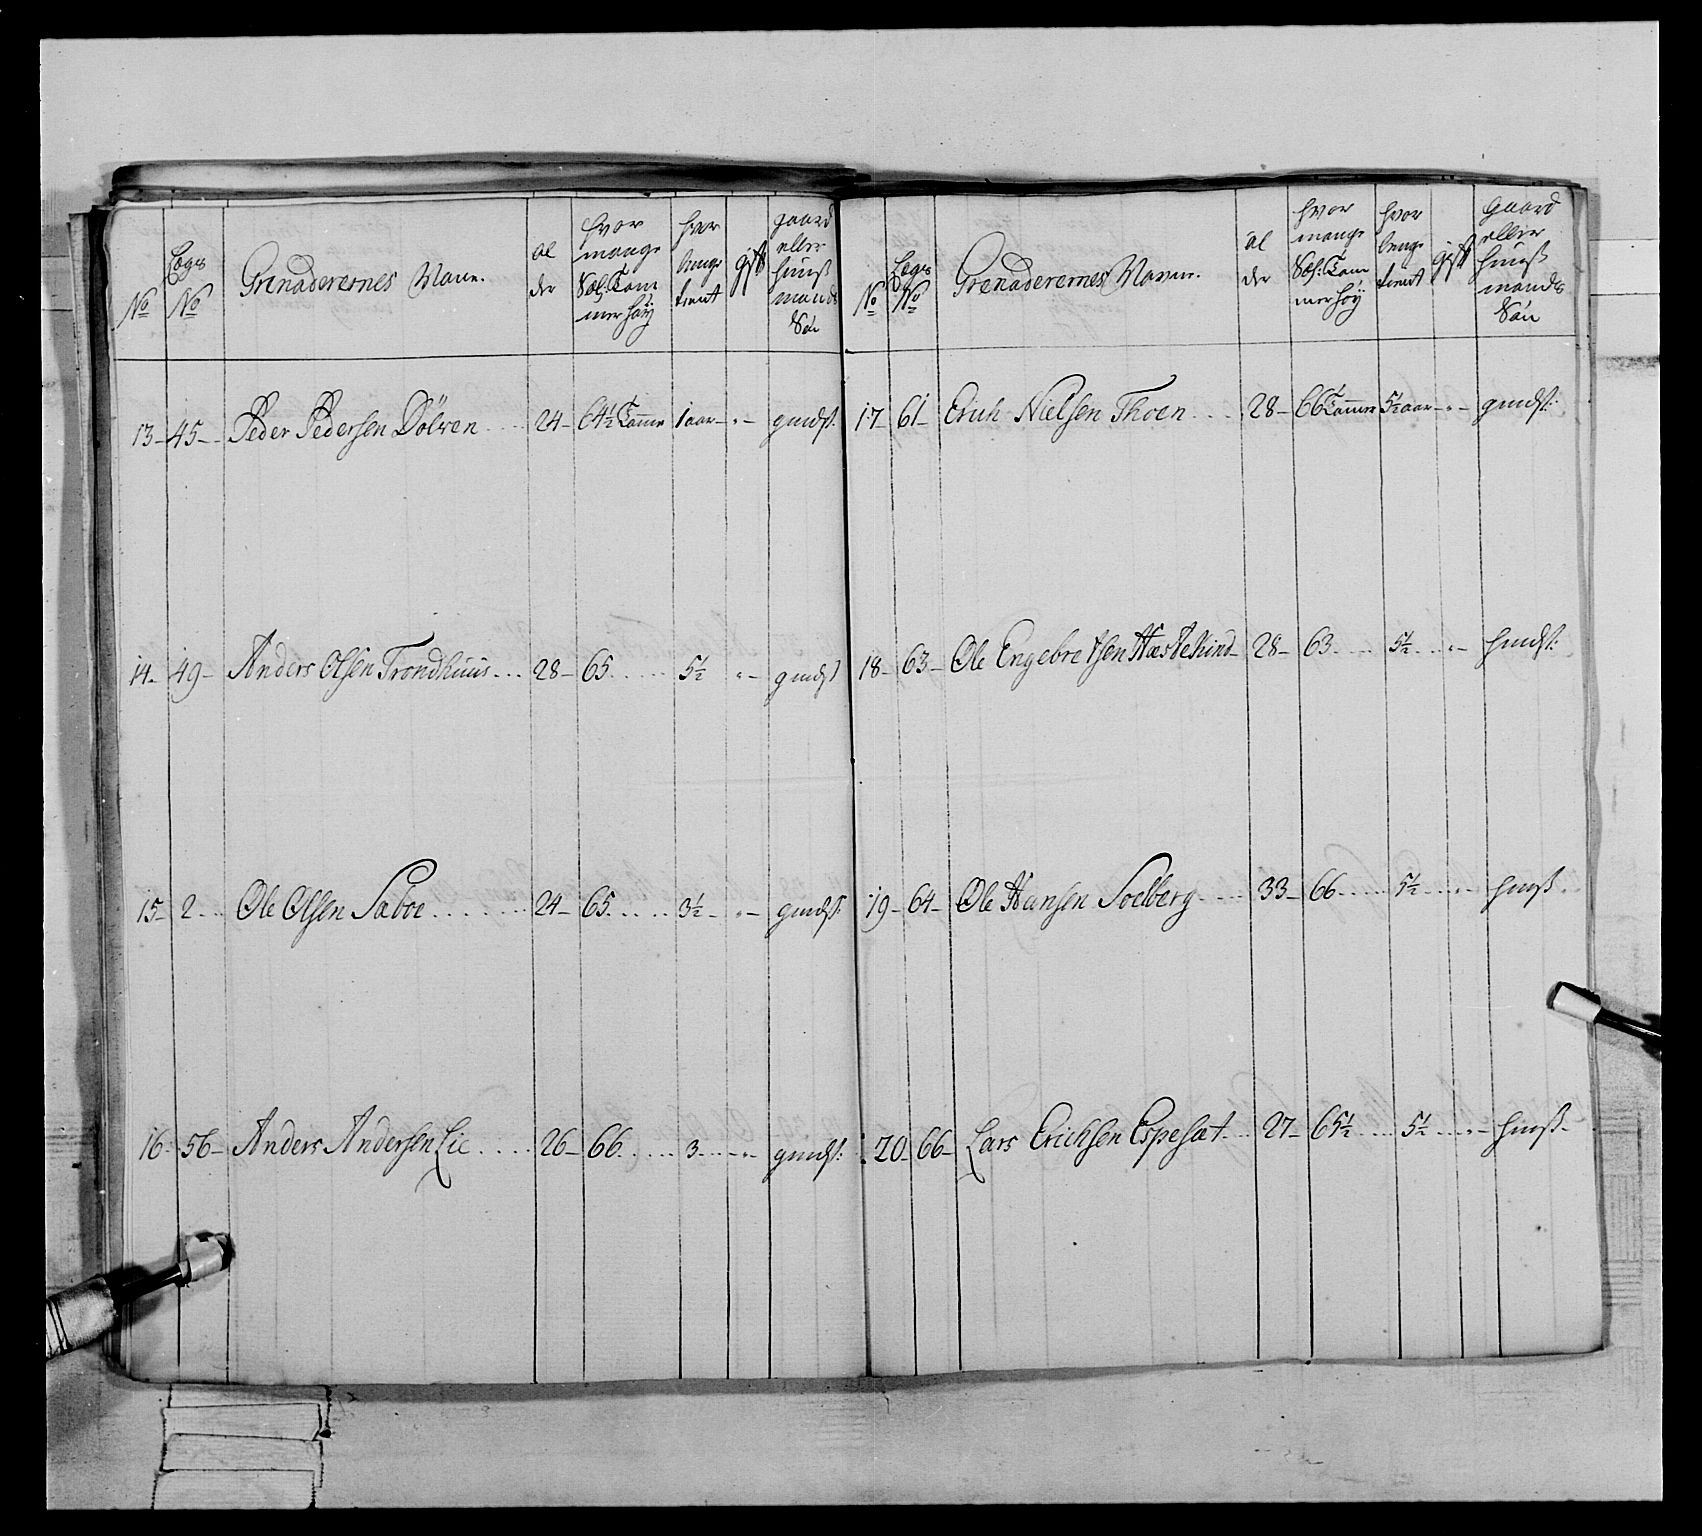 No
Lægs No
Grenaderernes Navne.
al der
hvor mange Sæl: Tom mer höÿ
hvor lenge tient
gift
gaard eller huus mands Sön
13 – 45 – Peder Pedersen Dölven . . . . 24 – 64½ Tomme 1 aar – " – gmds:
14 – 49 – Anders Olsen Trondhuus . . . 28 – 65 . . . . . 5½ " – gmds:
15 – 2 . . . Ole Olsen Saboe . . . . . . . 24 – 65 . . . . . 3½ – " – gmds:
16 – 56 – Anders Andersen Lie . . . . 26 – 66 . . . . . 3 . . . – " – gmds:
No
Lægs No
Grenaderernes Navne.
al der
hvor mange Sæl: Tom mer höÿ
hvor lenge tient
gift
gaard eller huus mands Sön
17 – 61 – Erich Nielsen Thoen . . . . 28 – 66 Tomme 5½ aar – " – gmds:
18 – 63 – Ole Engebretsen Hæstekind – 28 – 63 . . . . 5½ . . . " – hmds:
19 – 64 – Ole Hansen Soelberg . . . . 33 – 66 . . . . . 5½ . . . " – huus
20 – 66 – Lars Erichsen Espesæt . . . 27 – 65½ . . . . 5½ . . . " – huus –